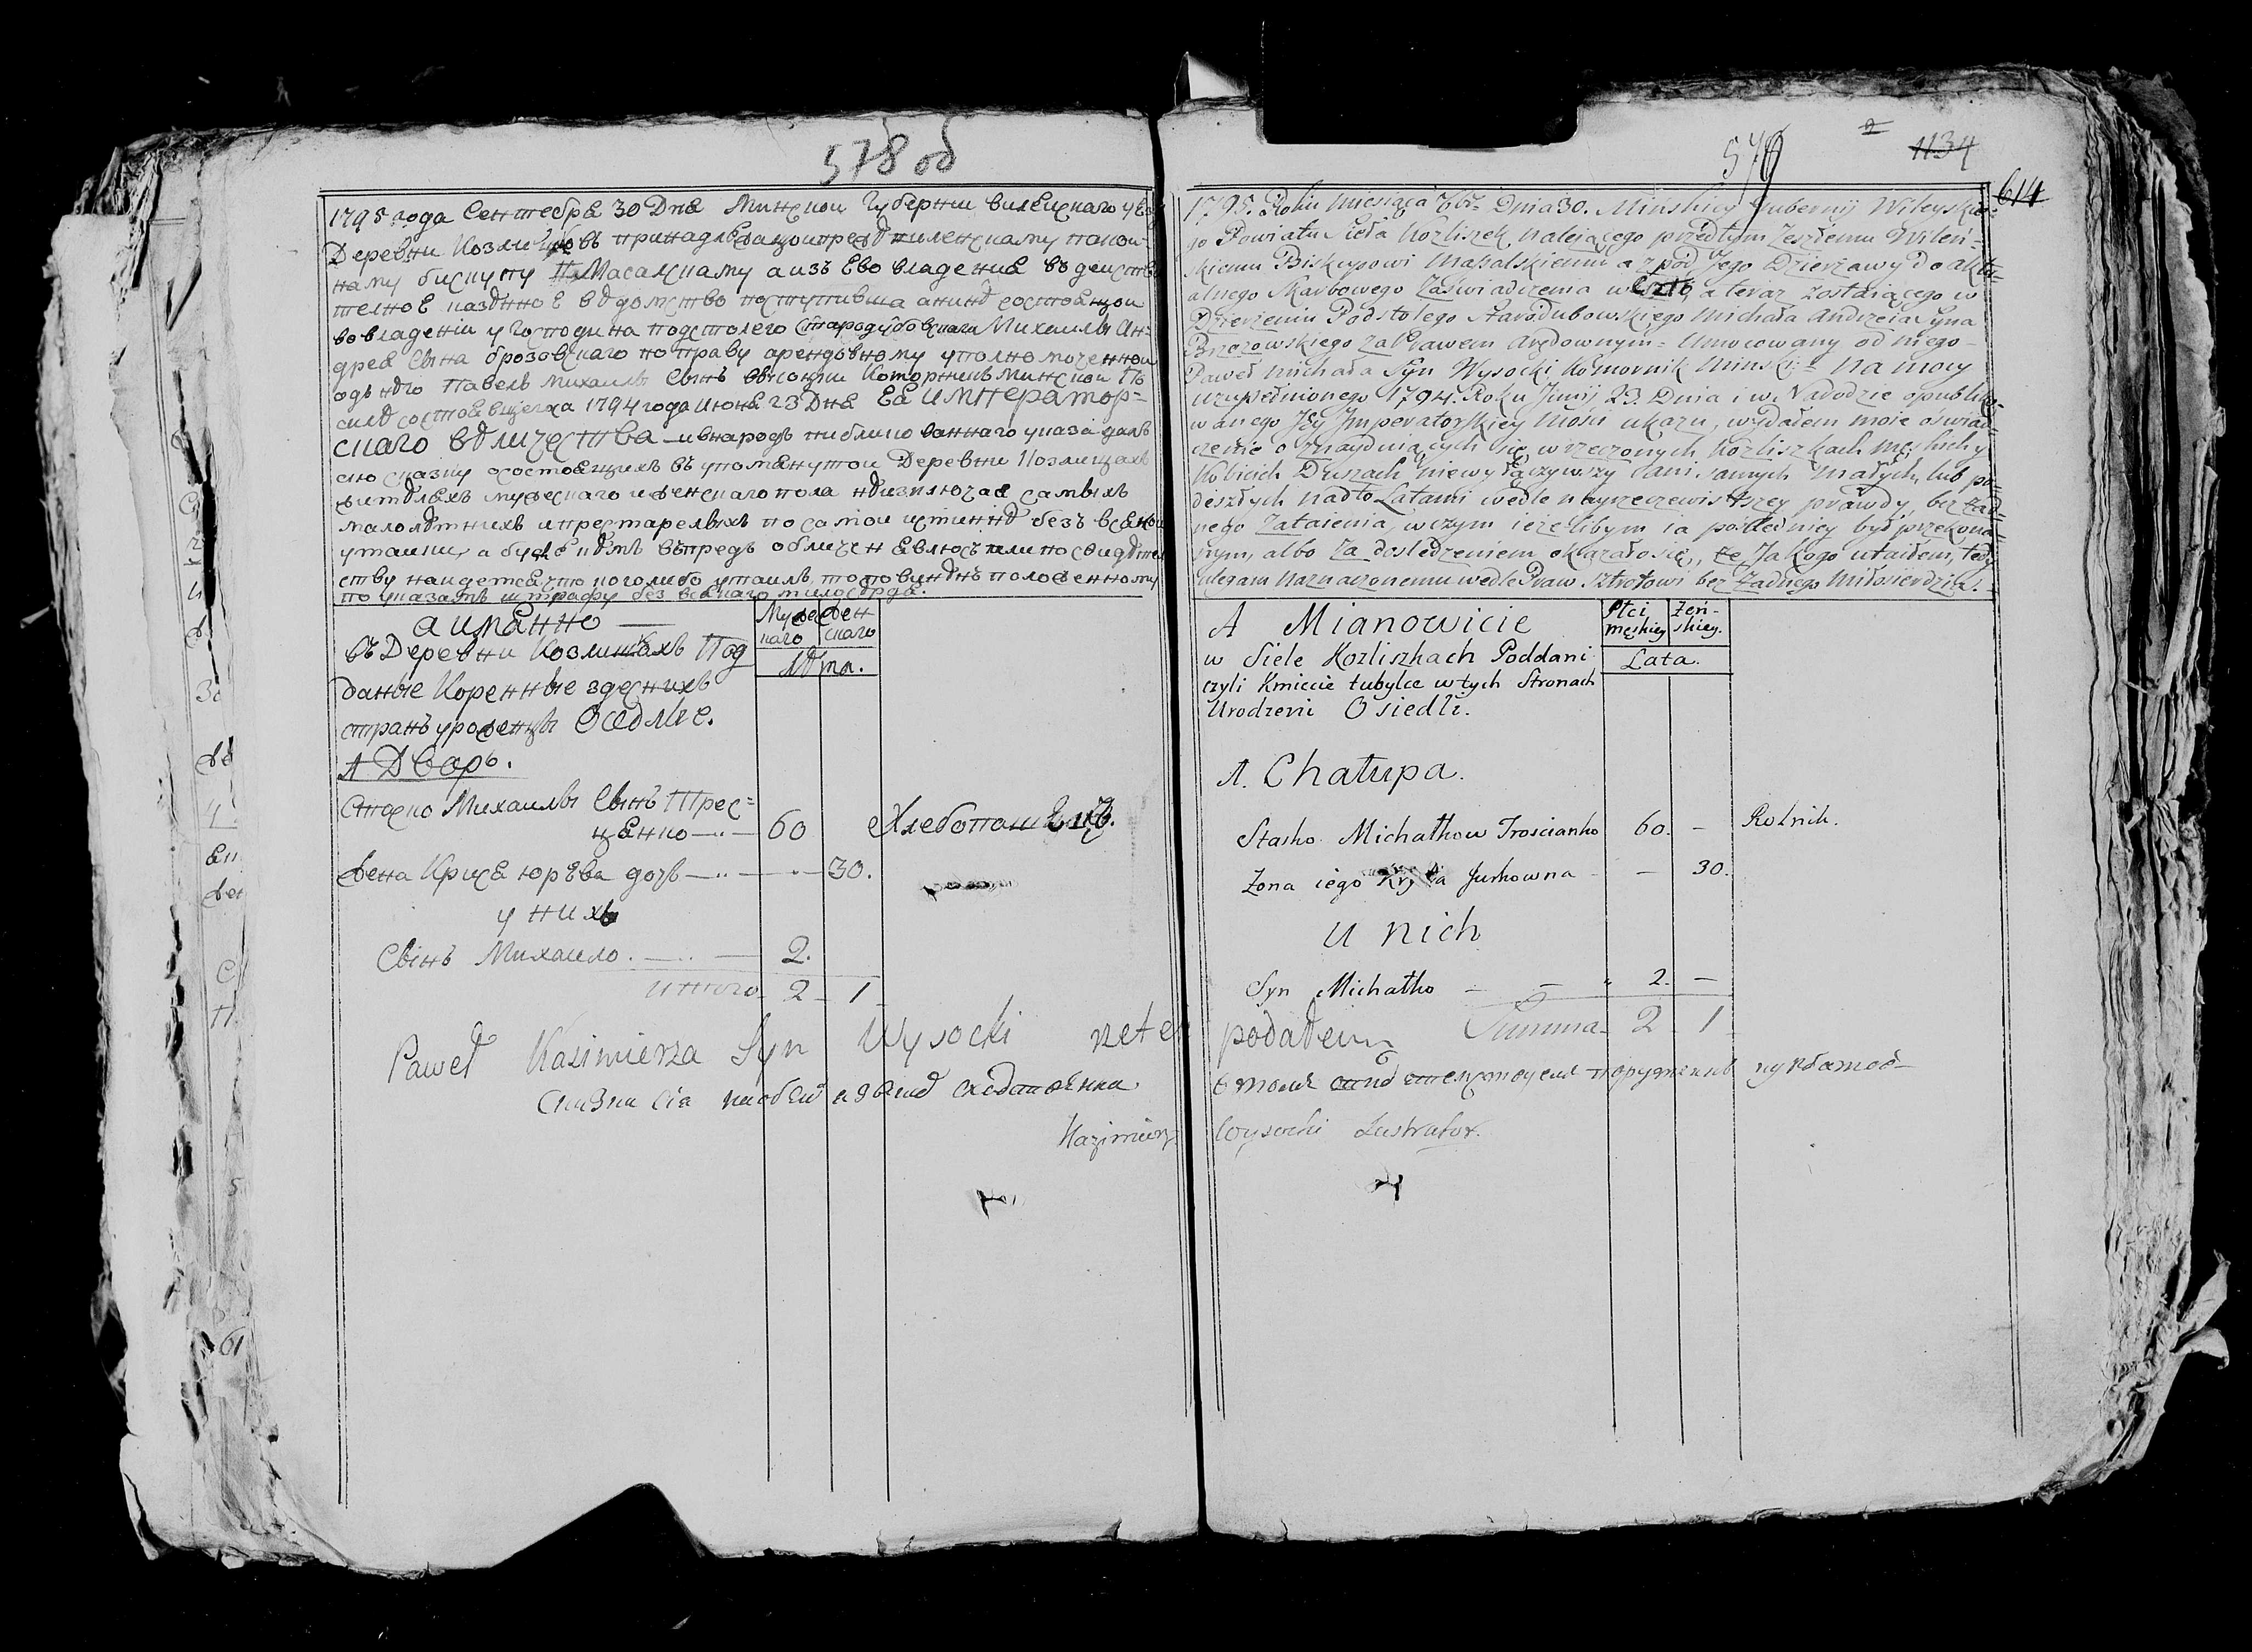 578 об
1795 года Сентебрѣ 30 Дня Минской Губерніи Вилейскаго
Деревни принадлежащой пред Виленскому
ному бискупу Масалскому а изъ Ево владения въ
телное казенное ведомство поступивша а нине состоящой
во владении у Господина подстолего Стародубовскаго Михаилы Ан-
дрея Сына брозовскаго по праву арендовному уполномоченной
одъ него Павелъ Михаилы Сынъ высоцки Коморникъ Минской По
силе состоявшегося 1794 года июня 23 Дня Ея Император-
скаго величества и в народъ публикованнаго указа далъ
сию сказку о состоящихъ въ упомянутой Деревни Козлишкахъ
жителяхъ мужескаго и женскаго пола не изключая самыхъ
малолетнихъ и престарелыхъ по самой истинне безъ всякой
утайки, а буде кемъ впредь обличенъ явлюсь или по свидетел
ству найдется что кого либо утаилъ, то повиненъ положенному
по указамъ штрафу без всякаго милосердя.
а имянно
въ Деревни Козлишкахъ Под
даные Коренные здесних
странъ уроженцы Оседлые.
Мужес
каго
Жен
скаго
Лѣта.
1 Дворъ.
Стаско Михаилы Сынъ Трес=
цянко 60 Хлебопашецъ.
жена Крися юрева дочь 30.
у нихъ
Сынъ Михаило. 2.
Итого 2 1
Paweł Kazimierza Syn Wysocki
Сказка сія
Kazimierz
579
2
1134
614
1795. Roku Miesiąca 7br. Dnia 30. Minskiey Gubernij Wileyskie-
go Powiatu Sieła Kozliszek, należącego przedtym Zeszłemu Wileń-
skiemu Biskupowi Masalskiemu a zpod Jego Dzierżawy do aktu-
alnego Skarbowego Zaświadczenia a teraz zostaiącego w
Dzierżeniu Podstolego Starodubowskiego Michała Andrzeia Syna
Brzozowskiego za Prawem Arędownym= Umocowany od niego
Paweł Michała Syn Wysocki Komornik Minski= na mocy
uzupełnionego 1794. Roku Junij 23. Dnia i w Narodzie opubliko-
wanego Jey Jmperatorskiey Mości ukazu, wydałem moie oświad-
czenie o znayduiących się w rzeczonych Kozliszkach męskich y
Kobiecich Duszach niewyłączywszy ani samych małych, lub po-
deszłych nadto Latami wedle nayrzeczewistszey prawdy, bez żad-
nego zataienia, w czym ieżelibym ia poslednicy był przekona-
nym, albo za dosledzeniem okazało się, że Ja kogo utaiłem, tedy
ulegam naznaczonemu wedle Praw sztrofowi bez żadnego Miłosierdzia.
A Mianowicie
w Siele Kozliszkach Poddani
czyli Kmiecie tubylce w tych Stronach
Urodzeni Osiedli.
Płci
męskiey
Żeń-
skiey.
Lata.
1. Chałupa.
Stasko Michałkow Troscianko 60. - Rolnik.
Zona iego Jurkowna - 30.
u nich
Syn Michałko 2. -
podałem
Summa 2 1
Wysocki Lustrator.